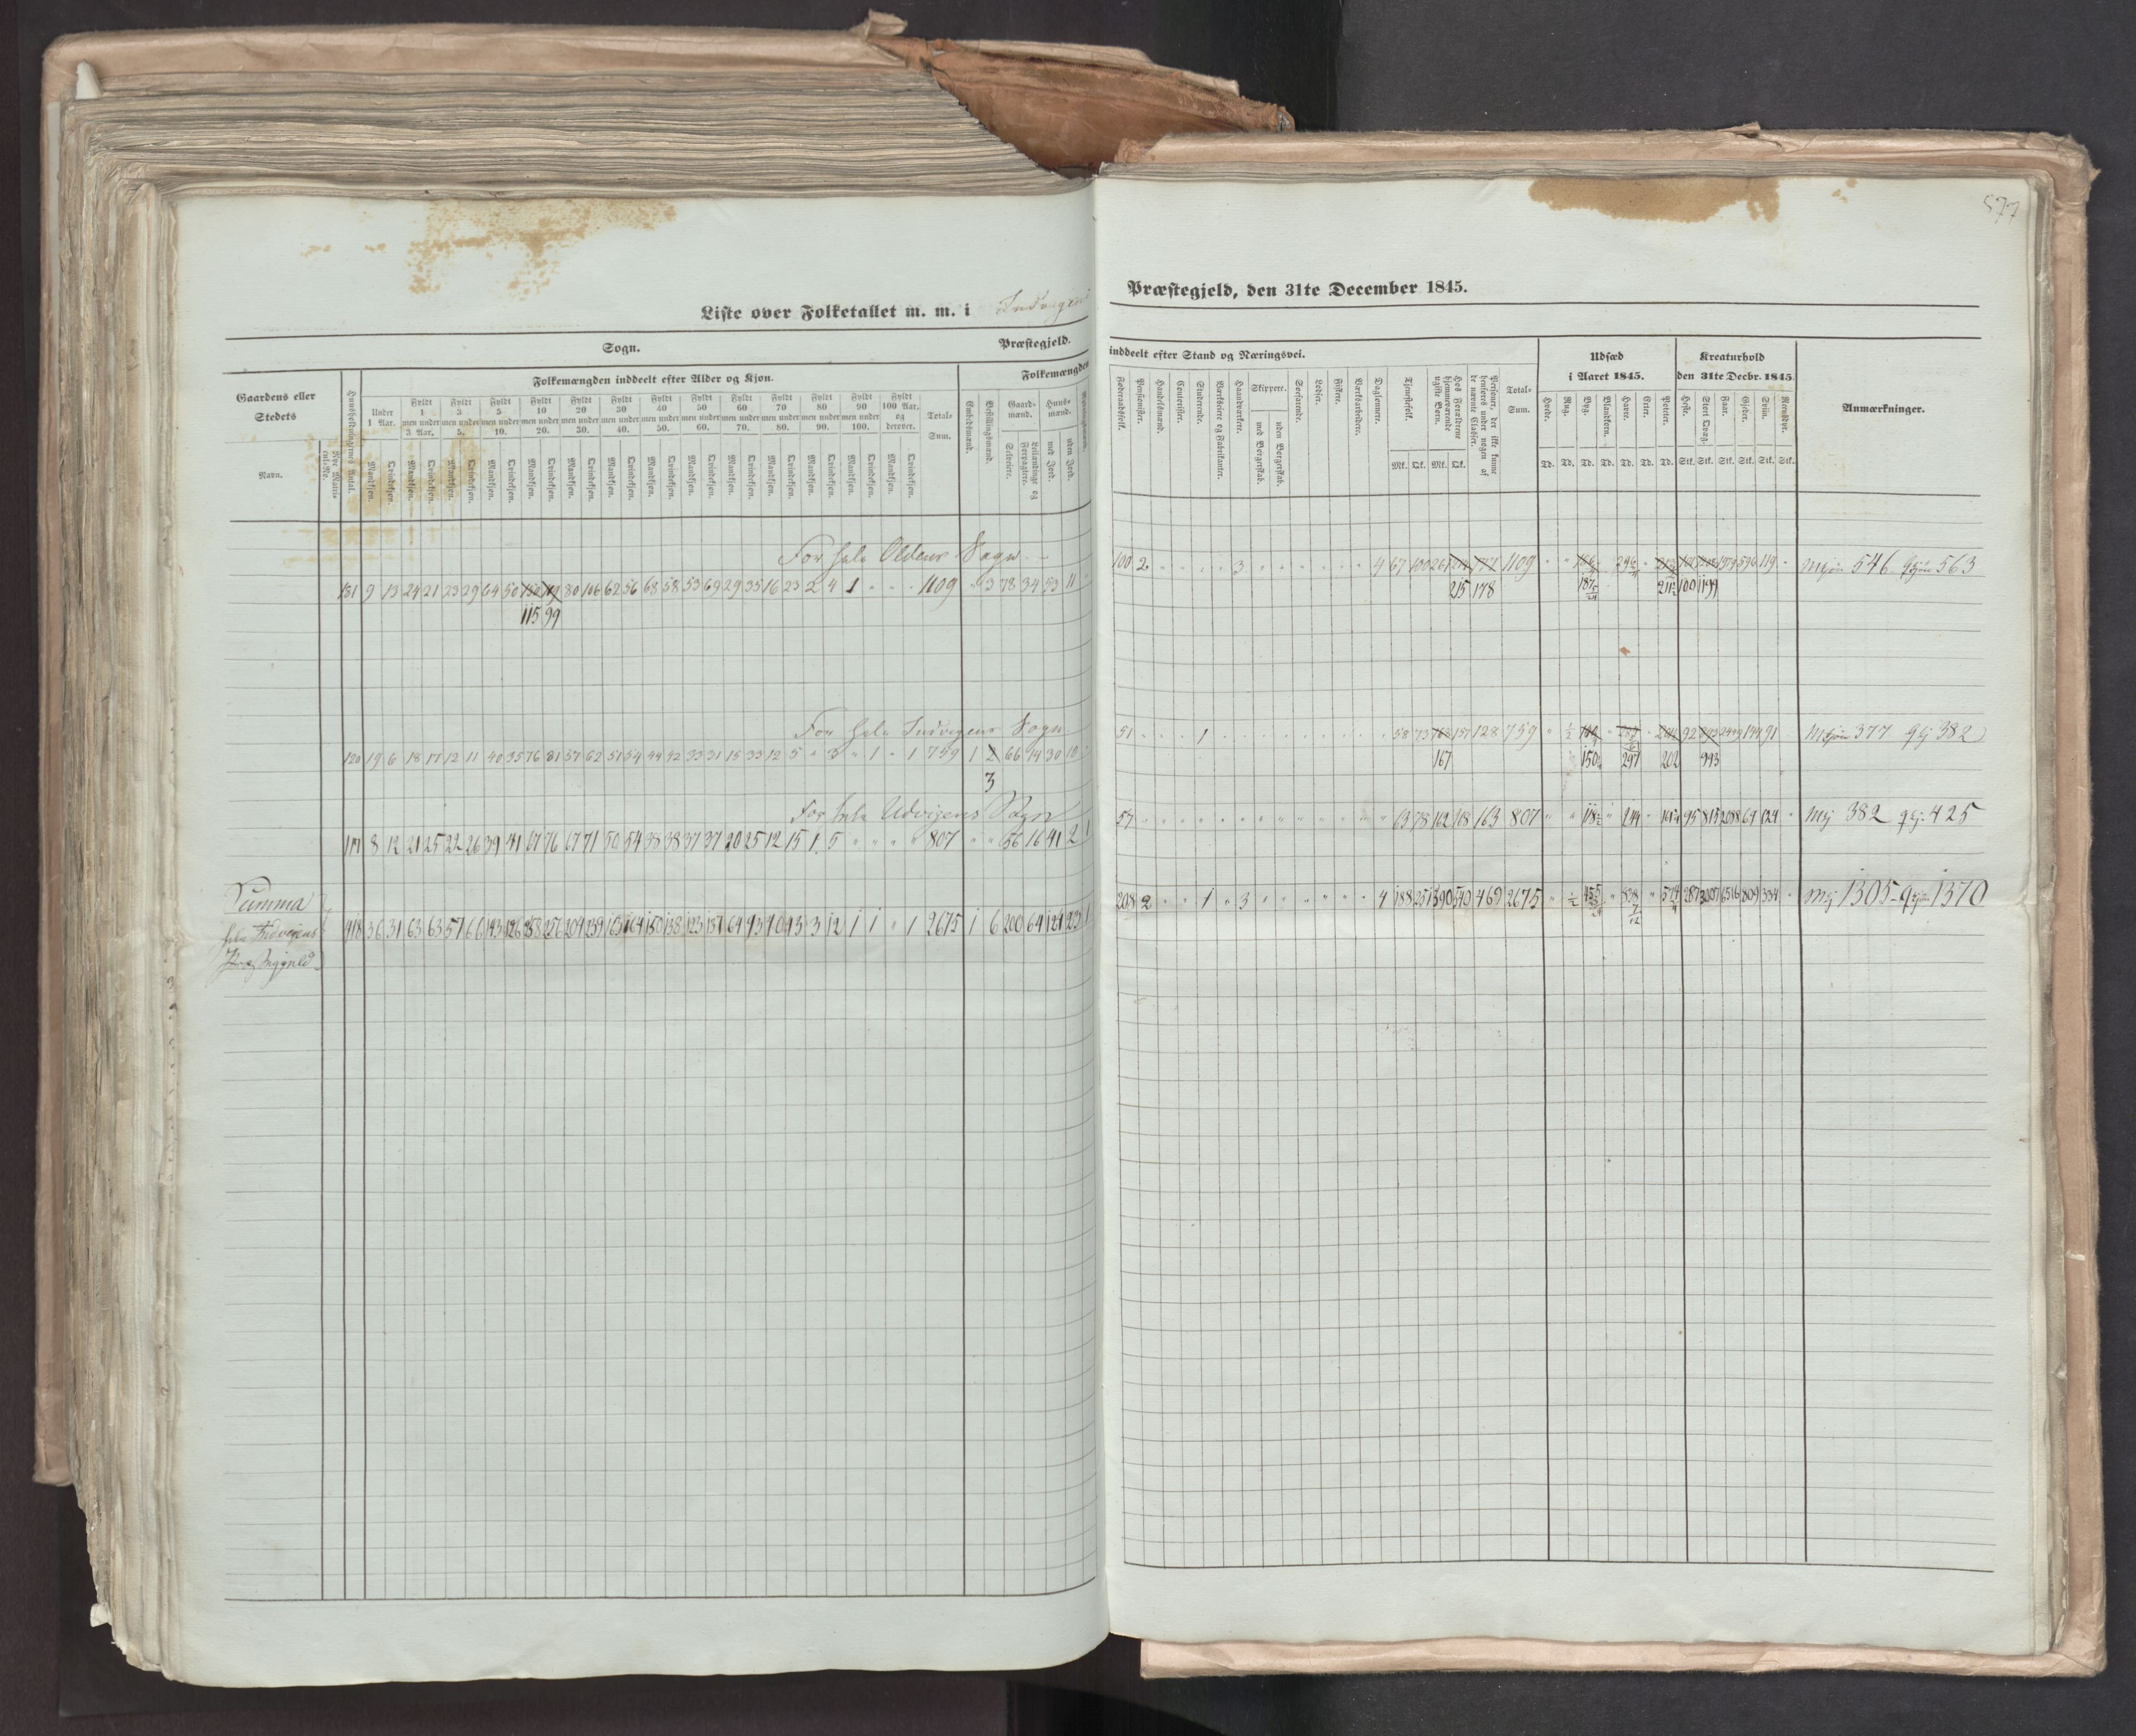 577
Liste over Folketallet m. m. i Indvigens
Præstegjeld, den 31te December 1845.
Sogn.
Præstegjeld.
Gaardens eller Stedets Navn.
Nye Matricul-No.
Huusholdningernes Antal.
Folkemængden inddeelt efter Alder og Kjøn.
Folkemængden
Under 1 Aar.
Fyldt 1 men under 3 Aar.
Fyldt 3 men under 5.
Fyldt 5 men under 10.
Fyldt 10 men under 20.
Fyldt 20 men under 30.
Fyldt 30 men under 40.
Fyldt 40 men under 50.
Fyldt 50 men under 60.
Fyldt 60 men under 70.
Fyldt 70 men under 80.
Fyldt 80 men under 90.
Fyldt 90 men under 100.
Fyldt 100 Aar, og derover.
Mandkjøn. Qvindekjøn.
Total-Sum.
Embedsmænd.
Bestillingsmænd.
Gaardmænd.
Selveiere.
Leilændinge og Forpagtere.
Huusmænd.
med Jord.
uden Jord.
inddeelt efter Stand og Næringsvei.
Føderaadsfolk.
Pensionister.
Handelsmænd.
Contorister.
Studerende.
Værkseiere og Fabrikanter.
Haandværkere.
Skippere.
med Borgerskab.
uden Borgerskab.
Søefarende.
Lodser.
Fiskere.
Værksarbeidere.
Daglønnere.
Tjenestefolk.
Hos Forældrene hjemmeværende ugifte Børn.
Mk. Qk. Mk. Qk.
Personer, der ikke kunne henføres under nogen af de nævnte Classer.
Total-Sum.
Udsæd i Aaret 1845.
Hvede. Rug. Byg. Blandkorn. Havre. Erter. Poteter.
Td. Td. Td. Td. Td. Td. Td.
Kreaturhold den 31te Decbr. 1845.
Heste. Stort Qvæg. Faar. Gjeder. Sviin. Rensdyr.
Stk. Stk. Stk. Stk. Stk. Stk.
Anmærkninger.
For hele Oldens Sogn
9 13 24 21 23 29 64 50 80 106 62 56 68 58 53 69 29 35 16 23 2 4 1 1109 3 78 34 53 11
115 99
100 2 3 4 67 100 261 1109 119 Mkjøn 546 Qkjøn 563
215 178 100 1199
For hele Indvigens Sogn
120 19 6 18 17 12 11 40 35 76 81 57 62 51 54 44 42 33 31 15 33 12 5 3 1 1 759 1 2 66 14 30 10
3
51 1 58 73 157 128 759 ½ 92 91 Mkjøn 377 Qkj 382
167 297 202 993
For hele Udvigens Sogn
8 12 21 25 22 26 39 41 67 76 67 71 50 54 38 38 37 37 20 25 12 15 1 5 807 56 16 41 2 1
57 63 78 162 168 163 807 95 Mkj 382 Qkj. 425
Summa
hele Indvigens
Præstegjeld
36 31 63 63 57 66 143 126 258 256 204 239 163 164 150 138 123 137 64 93 40 43 3 12 1 1 1 2675 1 6 200 64 124 23 1
208 2 1 3 4 188 251 590 540 469 2675 ½ 287 Mkj 1305 - Qkjøn 1370